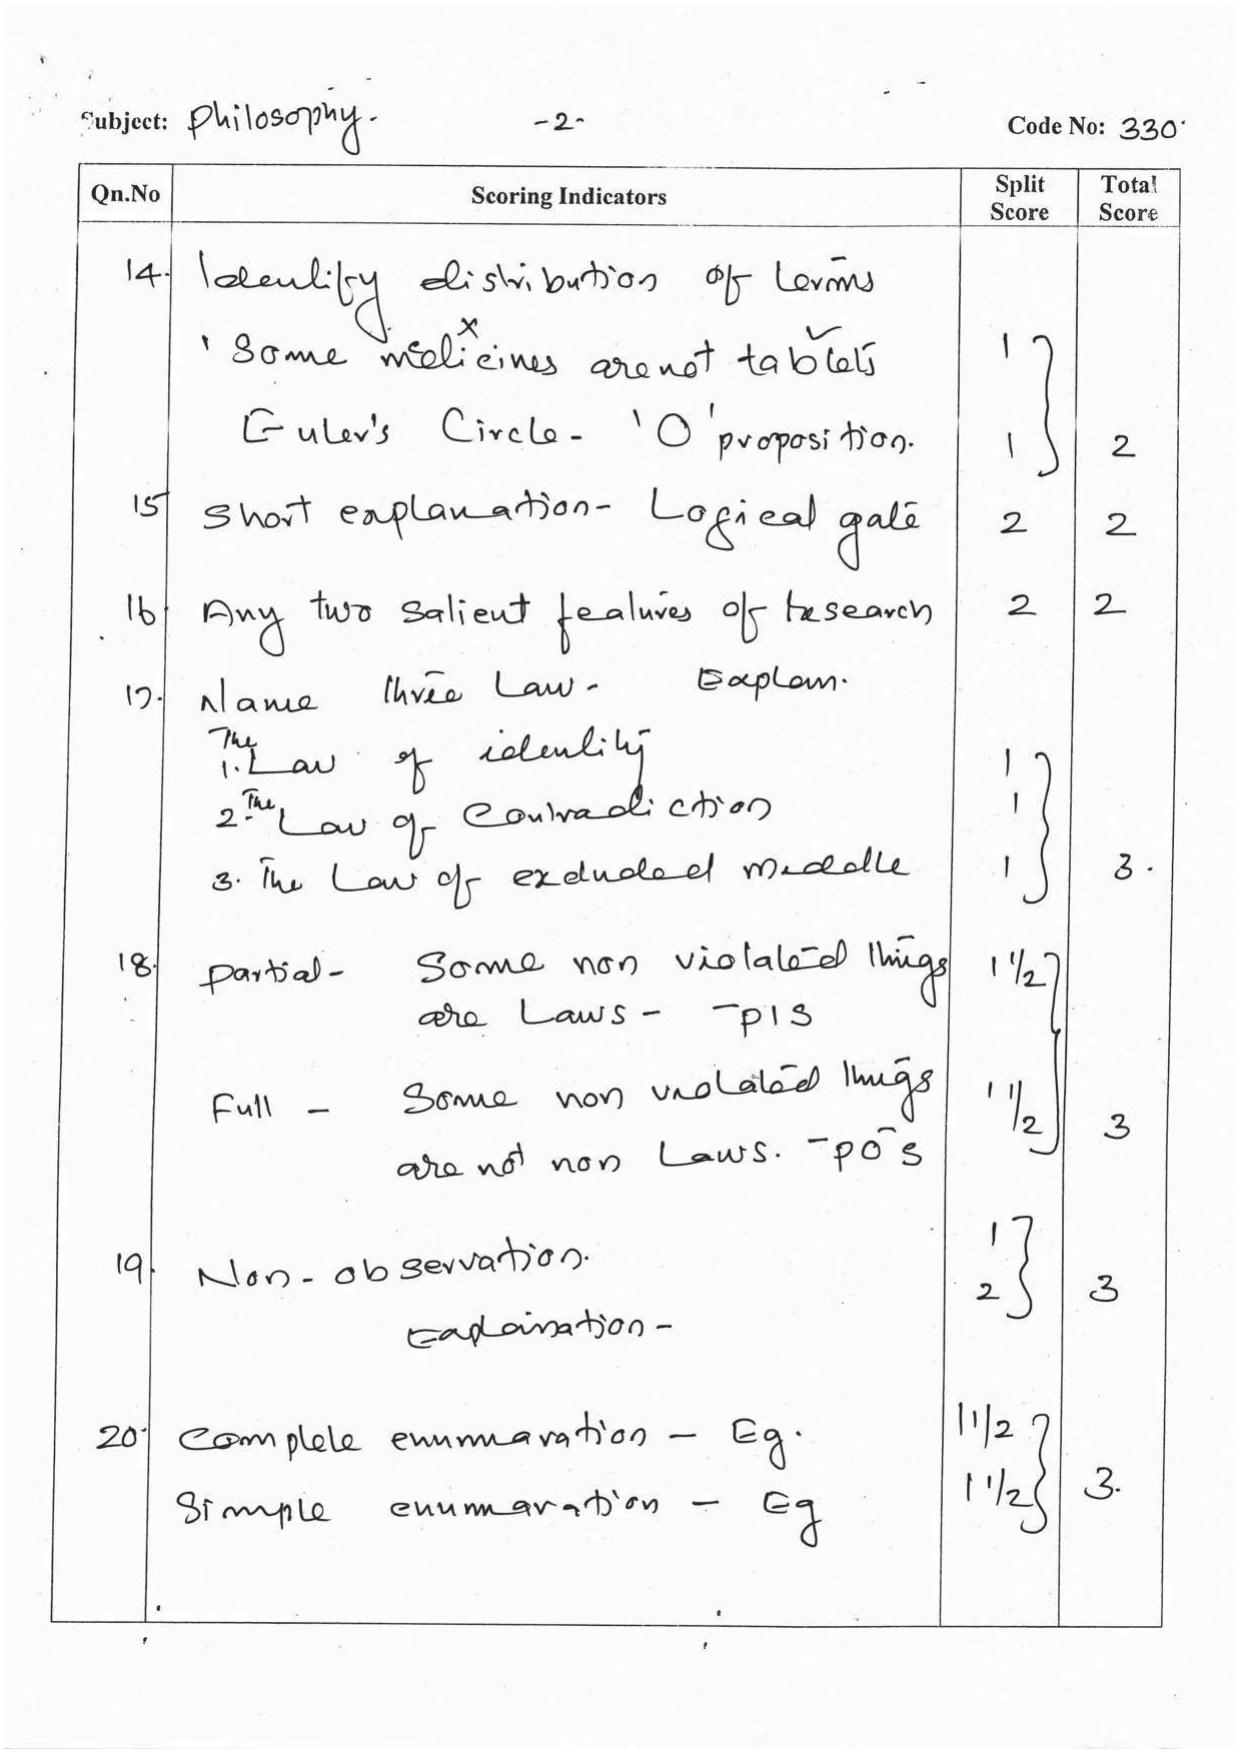 Subject: Philosophy. -2- Code No: 330
Qn.No Scoring Indicators Split Score Total Score
14. Identify distribution of terms
' Some medicines are not tablets 1
x ✓
Euler's Circle - 'O' proposition. 1 2
15 Short explanation - Logical gate 2 2
16 Any two salient features of research 2 2
17. Name three Law - Explain.
The
1. Law of identity 1
2. The Law of Contradiction 1
3. The Law of excluded middle 1 3.
18. Partial - Some non violated things 1 1/2
are Laws - ‾PIS
Full - Some non violated things 1 1/2 3
are not non Laws. ‾PO‾S
19. Non-observation. 1
Explaination - 2 3
20. Complete enumaration - Eg. 1 1/2
Simple enumaration - Eg 1 1/2 3.